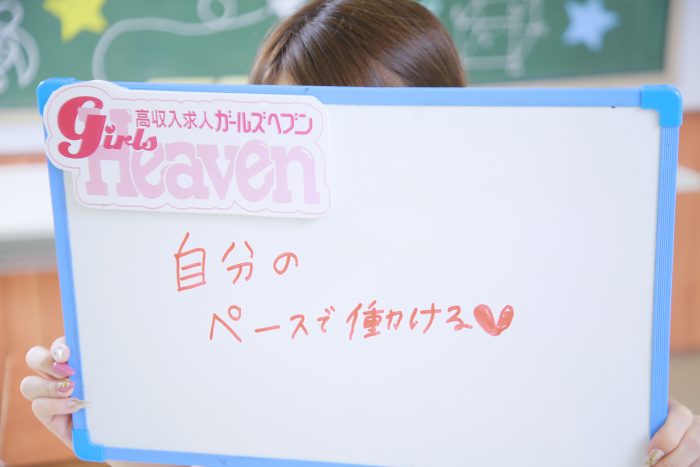 高収入求人ガールズヘブン
Girls
Heaven
自分の
ペースで働ける♥